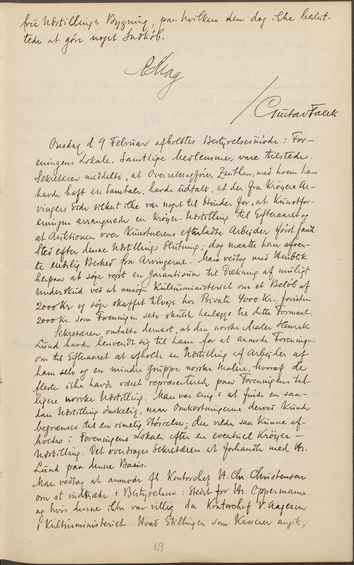 frie Udstillings Bygning, paa hvilken den dog ikke beslut-
tede at gøre noget Indkøb.
Gustav Falck
Onsdag d. 9 Februar afholdtes Bestyrelsesmøde i For-
eningens Lokale. Samtlige Medlemmer vare tilstede.
Sekretæren meddelte, at Overretssagfører Zeuthen, med hvem han
havde haft en Samtale, havde udtalt, at der fra Krøyers Ar-
vingers Side vilkaarlig ikke var noget til Hinder for, at Kunstfor-
eningen arrangerede en Krøyer-Udstilling til Efteraaret og
at Auktionen over Kunstnerens efterladte Arbejder først fandt
Sted efter denne Udstillings Slutning; dog maatte han afven-
te endelig Besked fra Arvingerne. Man vedtog med Henblik
herpaa at søge rejst en Garantisum til Dækning af muligt
Underskud ved at ansøge Kultusministeriet om et Beløb af
2000 Kr og søge skaffet tilveje hos Private 4000 Kr, foruden
2000 Kr. som Foreningen selv skulde henlægge til dette Formaal.
Sekretæren omtalte dernæst, at den norske Maler Henrik
Lund havde henvendt sig til ham for at anmode Foreningen
om til Efteraaret at afholde en Udstilling af Arbejder af
ham selv og en mindre Gruppe norske Malere, hvoraf de
fleste ikke havde været repræsenteret paa Foreningens tid-
ligere norske Udstilling. Man var enig i at finde en saa-
dan Udstilling ønskelig, naar Omkostningerne derved kunde
begrænses til en rimelig Størrelse; den vilde da kunne af-
holdes i Foreningens Lokale efter en eventuel Krøyer-
Udstilling. Det overdroges Sekretæren at forhandle med Hr.
Lund paa denne Basis.
Man vedtog at anmode fh. Kontorchef H. Chr. Christensen
om at indtræde i Bestyrelsen i Stedet for Hr. Oppermann
og hvis denne ikke var villig da Kontorchef V. Aagesen
i Kultusministeriet. Hvad Stillingen som Kasserer angik,